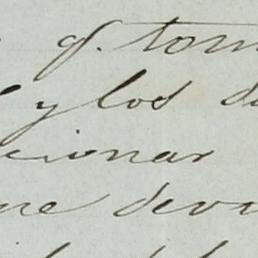 q. tom
y los d
cionar
ue devu